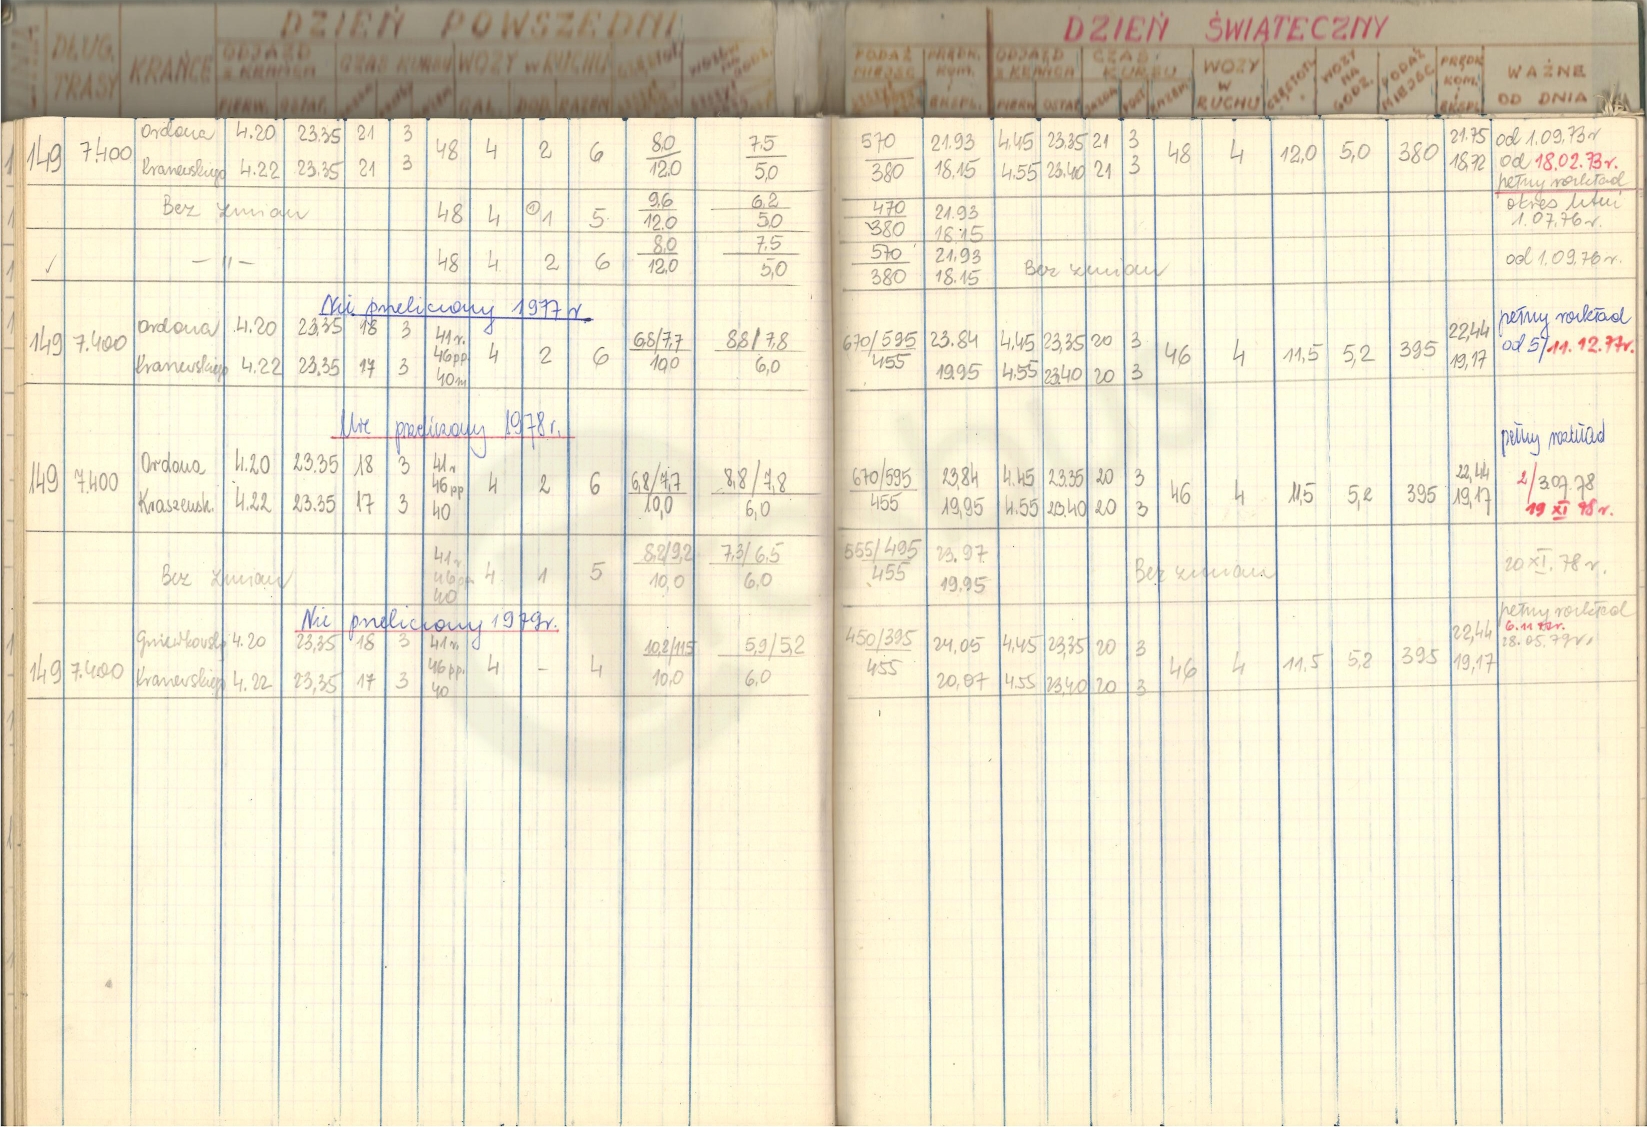 DZIEŃ POWSZEDNI DZIEŃ ŚWIĄTECZNY
DŁUG. TRASY KRAŃCE ODJAZD Z KRAŃCA CZAS KURSU WOZY W RUCHU
PODAŻ MIEJSC PRĘDK. KOM. EKSPL. ODJAZD Z KRAŃCA CZAS KURSU WOZY W RUCHU WOZY NA GODZ. PODAŻ MIEJSC PRĘDK. KOM. EKSPL. WAŻNE OD DNIA
PIERW. OSTAT. RAZEM
149 7.400 Ordona 4.20 23.35 21 3 48 4 2 6 8.0 7.5 570 21.93 4.45 23.35 21 3 48 4 12,0 5,0 380 21.75 od 1.09.73r
4.22 23.35 21 3 12.0 5,0 380 18.15 4.55 23.40 21 3 18,72 od 18.02.73r.
pełny rozkład
Bez zmian 48 4 1 5 9,6 6,2 470 21.93 okres letni
12.0 5.0 380 18.15 1.07.76r.
✓ — 〃 — 48 4 2 6 8.0 7.5 570 21.93 Bez zmian od 1.09.76r.
12,0 5,0 380 18.15
Nie przeliczony 1977 r.
149 7.400 Ordona 4.20 23.35 18 3 41r. 4 2 6 6.8/7.7 8.8/7.8 670/595 23.84 4.45 23.35 20 3 46 4 11,5 5,2 395 22,44 pełny rozkład
4.22 23.35 17 3 46pp 40m 10,0 6,0 455 19.95 4.55 23.40 20 3 19,17 od 5/11.12.77r.
Nie przeliczony 1978r.
149 7.400 Ordona 4.20 23.35 18 3 41r 4 2 6 6,8/7,7 8,8/7,8 670/595 23,84 4.45 23.35 20 3 46 4 11,5 5,2 395 22,44 pełny rozkład
Kraszewsk. 4.22 23.35 17 3 46pp 40 10,0 6,0 455 19,95 4.55 23.40 20 3 19,17 2/3.07.78
19 XI 78r.
Bez zmian 41r 46pp. 40 4 1 5 8.2/9.2 7,3/6.5 565/495 23.97 Bez zmian 20 XI. 78r.
10,0 6,0 455 19.95
Nie przeliczony 1979r.
149 7.400 4.20 23,35 18 3 41r 4 – 4 10,2/11,5 5,9/5,2 450/395 24,05 4.45 23,35 20 3 46 4 11,5 5,2 395 22,44 pełny rozkład
4.22 23,35 17 3 46pp. 40 10.0 6,0 455 20,07 4.55 23,40 20 3 19,17 28.05.79r.